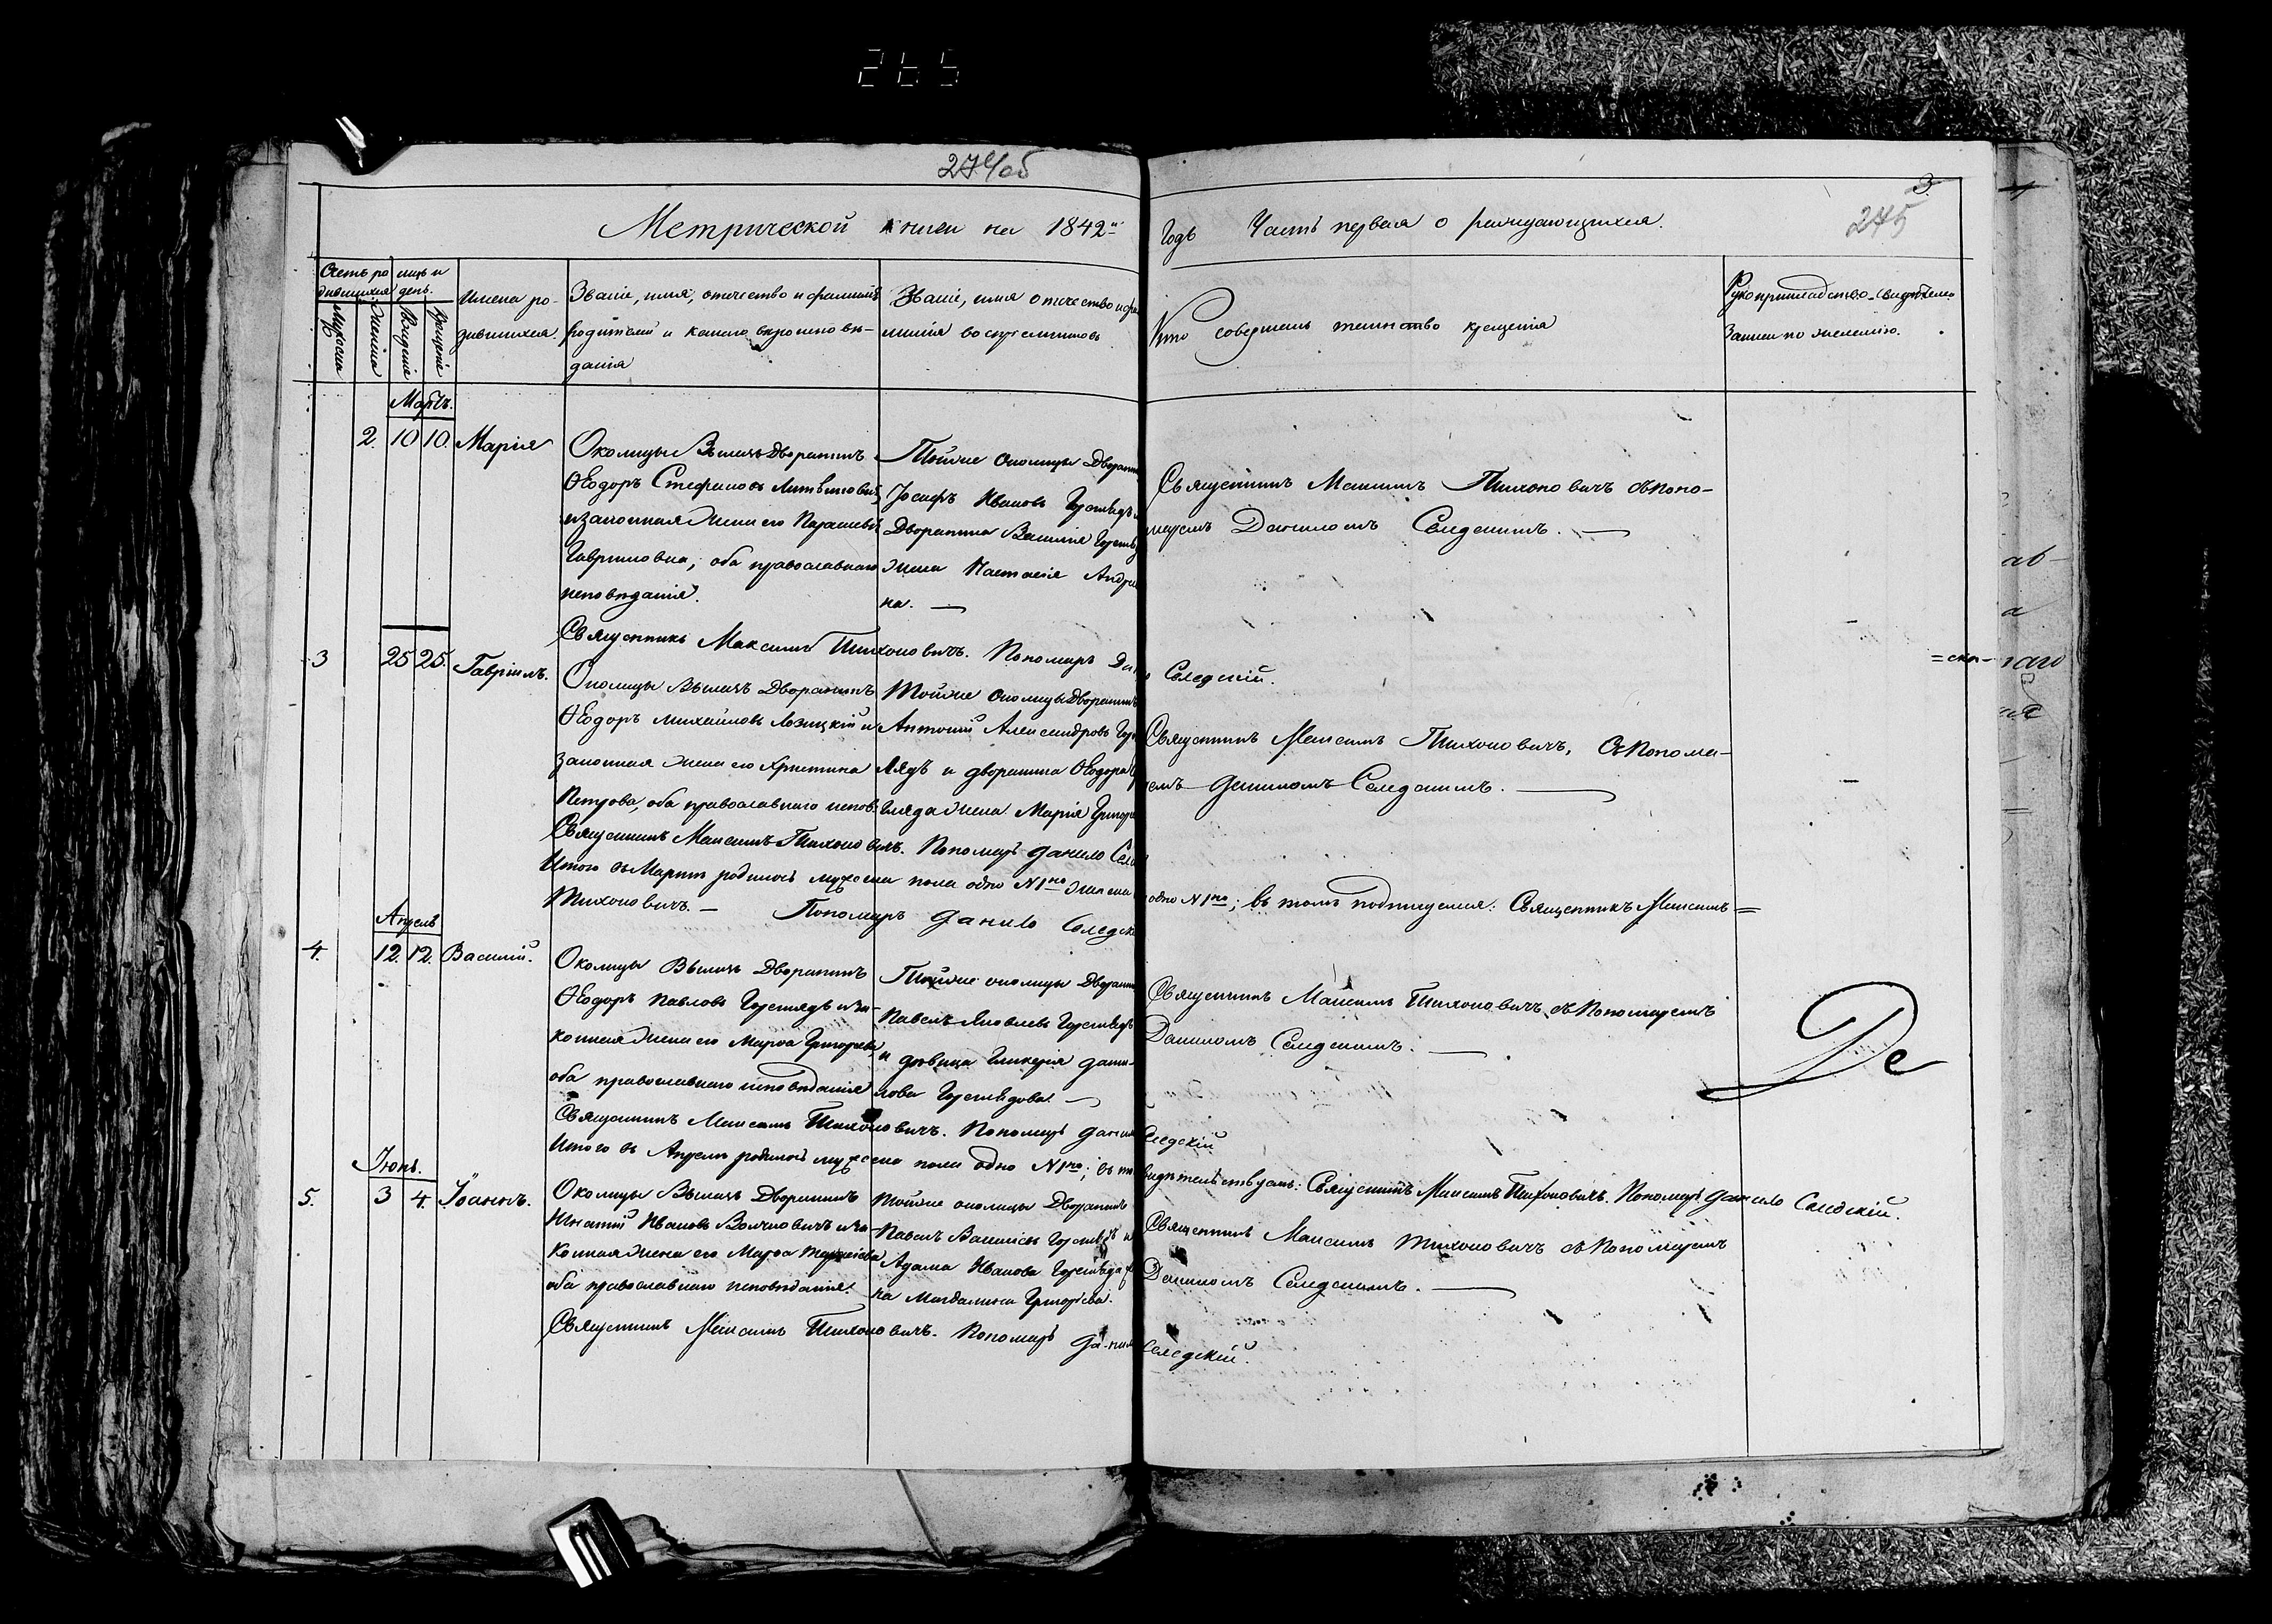 265
274/об
3.
275
Метрической книги на 1842й Годъ Часть первая о раждающихся.
Счетъ родившихся
мѣсяцъ и день.
Мужеска
Женска
Рожденіе
Крещеніе
Имена родившихся.
Званіе, имя, отчество и фамилія
родителей и какого вѣроисповѣ-
данія
Званіе, имя отчество и фа
милія воспріемниковъ
Кто совершалъ таинство крещенія
Рукоприкладство свидѣтелей
Записи по желанію.
Мартъ.
2. 10 10. Марія
Околицы Вѣличъ Дворянинъ
Ѳеодоръ Стефановъ Литвиновичъ
и законная жена его Параскева
Гавриилова, оба православнаго
исповѣданія.
Тойже околицы Дворянинъ
Іосифъ Ивановъ
Дворянина Василія
жена Настасія Андре
на. —
Священникъ Максимъ Тихоновичъ съ Поно-
маремъ Даниломъ Следскимъ. —
Священникъ Максимъ Тихоновичъ. Пономарь Данило Следскій.
3 25 25. Гавріилъ.
Околицы Вѣличъ Дворянинъ
Ѳеодоръ Михайловъ Лозицкій и
законная жена его Христина
Петрова, оба православнаго испов:
Тойже околицы Дворянинъ
Антоній Александровъ Гор
глядъ и дворянина Ѳеодора
гляда жена Марія Григорі
Священникъ Максимъ Тихоновичъ, съ Понома-
ремъ Даниломъ Следскимъ. —
Священникъ Максимъ Тихоновичъ. Пономарь Данило Следскій
=ска-
Итого въ Мартѣ родилось мужеска пола одно №1но женска одно №1но; въ томъ подписуемся: Священникъ Максимъ=
Тихоновичъ. — Пономарь Данило Следскій
Апрель
4. 12. 12. Василій.
Околицы Вѣличъ Дворянинъ
Ѳеодоръ Павловъ Горглядъ и за-
конная жена его Марѳа Григорьева,
оба православнаго исповѣданія
Тойже околицы Дворянинъ
Павелъ Яковлевъ Горглядъ
и дѣвица Гликерія Дани-
лова Горглядова. —
Священникъ Максимъ Тихоновичъ съ Пономаремъ
Даниломъ Следскимъ. —
Священникъ Максимъ Тихоновичъ. Пономарь Данило Следскій
Итого въ Апрелѣ родилось мужеска пола одно №1но; въ томъ свидѣтельствуемъ: Священникъ Максимъ Тихоновичъ. Пономарь Данило Следскій.
Де
Іюнь.
5. 3 4. Іоаннъ.
Околицы Вѣличъ Дворянинъ
Игнатій Ивановъ Волчковичъ и за-
конная жена его Марѳа
оба православнаго исповѣданія.
Тойже околицы Дворянинъ
Павелъ Василіевъ Горглядъ и
Адама Иванова Горгляда
на Магдалина Григорьева.
Священникъ Максимъ Тихоновичъ съ Пономаремъ
Даниломъ Следскимъ. —
Священникъ Максимъ Тихоновичъ. Пономарь Данило Следскій.